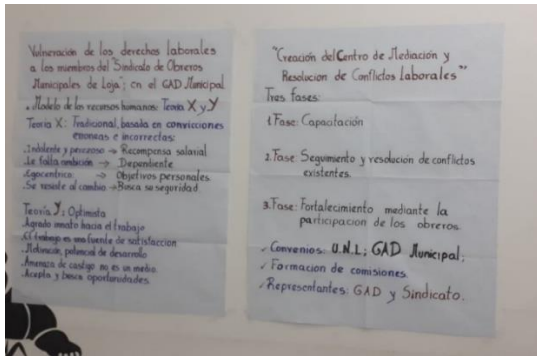 Vulneración de los derechos laborales
a los miembros del "Sindicato de Obreros
Municipales de Loja"; en el GAD Municipal.
. Modelo de los recursos humanos: Teoría X y Y
Teoría X: Tradicional, basada en convicciones
erroneas e incorrectas:
.Indolente y perezoso → Recompensa salarial
.Le falta ambición → Dependiente
.Egocentrico → Objetivos personales
.Se resiste al cambio → Busca su seguridad.
Teoría Y: Optimista
.Agrado innato hacia el trabajo
.El trabajo es una fuente de satisfacción
.Motivación, potencial de desarrollo
.Amenaza de castigo no es un medio
.Acepta y busca oportunidades.
"Creación del Centro de Mediación y
Resolución de Conflictos Laborales"
Tres fases:
1.Fase: Capacitación
2.Fase: Seguimiento y resolución de conflictos
existentes.
3.Fase: Fortalecimiento mediante la
participación de los obreros.
✓ Convenios: U.N.L; GAD Municipal;
✓ Formación de comisiones
✓ Representantes: GAD y Sindicato.